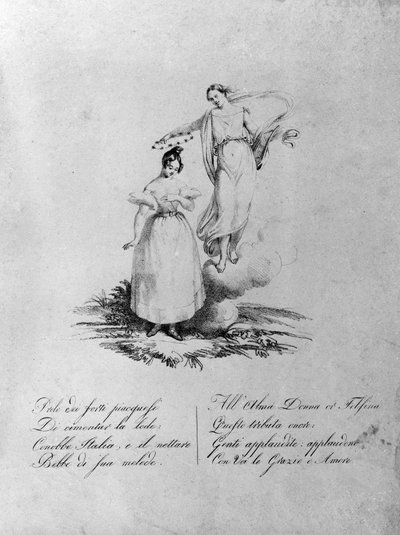 dei forti piacquesi
Di cimentar la lode;
Conobbe Italia, e il nettare
Bebbe di sua melode.
All'Alma Donna or Felsina
Questo tributa onore:
Genti applaudite: applaudono
Con le Grazie e Amore